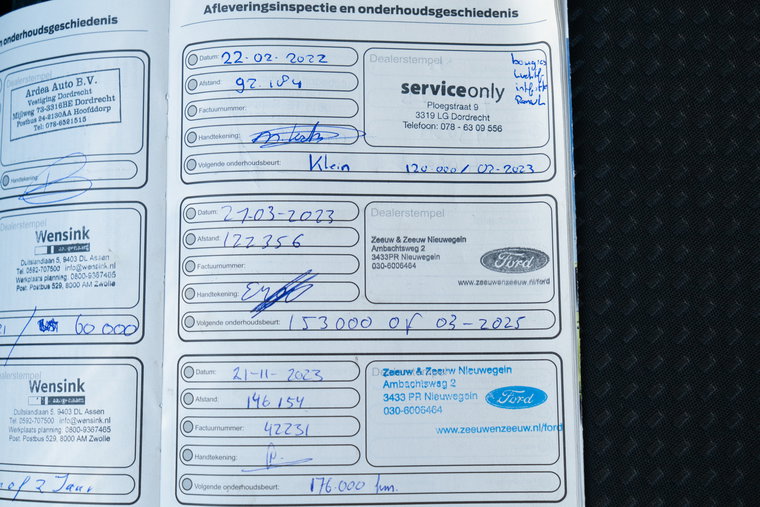 n onderhoudsgeschiedenis
Dealerstempel
Ardea Auto B.V.
Vestiging Dordrecht
Mijlweg 73-3316BE Dordrecht
Postbus 24-2130AA Hoofddorp
Tel: 078-6521515
Handtekening:
Dealerstempel
Wensink
Duitslandlaan 5, 9403 DL Assen
Tel. 0592-707500 info@wensink.nl
Werkplaats planning: 0800-9367465
Post: Postbus 529, 8000 AM Zwolle
60000
Dealerstempel
Wensink
Duitslandlaan 5, 9403 DL Assen
Tel. 0592-707500 info@wensink.nl
Werkplaats planning: 0800-9367465
Post: Postbus 529, 8000 AM Zwolle
of 2 Jaar
Afleveringsinspectie en onderhoudsgeschiedenis
Datum: 22-02-2022
Afstand: 92.184
Factuurnummer:
Handtekening:
Dealerstempel
serviceonly
Ploegstraat 9
3319 LG Dordrecht
Telefoon: 078 - 63 09 556
bougies
Volgende onderhoudsbeurt: Klein 120.000/ 02-2023
Datum: 27-03-2023
Afstand: 122356
Factuurnummer:
Handtekening:
Dealerstempel
Zeeuw & Zeeuw Nieuwegein
Ambachtsweg 2
3433PR Nieuwegein
030-6006464
Ford
www.zeeuwenzeeuw.nl/ford
Volgende onderhoudsbeurt: 153000 of 03-2025
Datum: 21-11-2023
Afstand: 146 154
Factuurnummer: 42231
Handtekening:
Dealerstempel
Zeeuw & Zeeuw Nieuwegein
Ambachtsweg 2
3433 PR Nieuwegein
030-6006464
Ford
www.zeeuwenzeeuw.nl/ford
Volgende onderhoudsbeurt: 176.000 km.